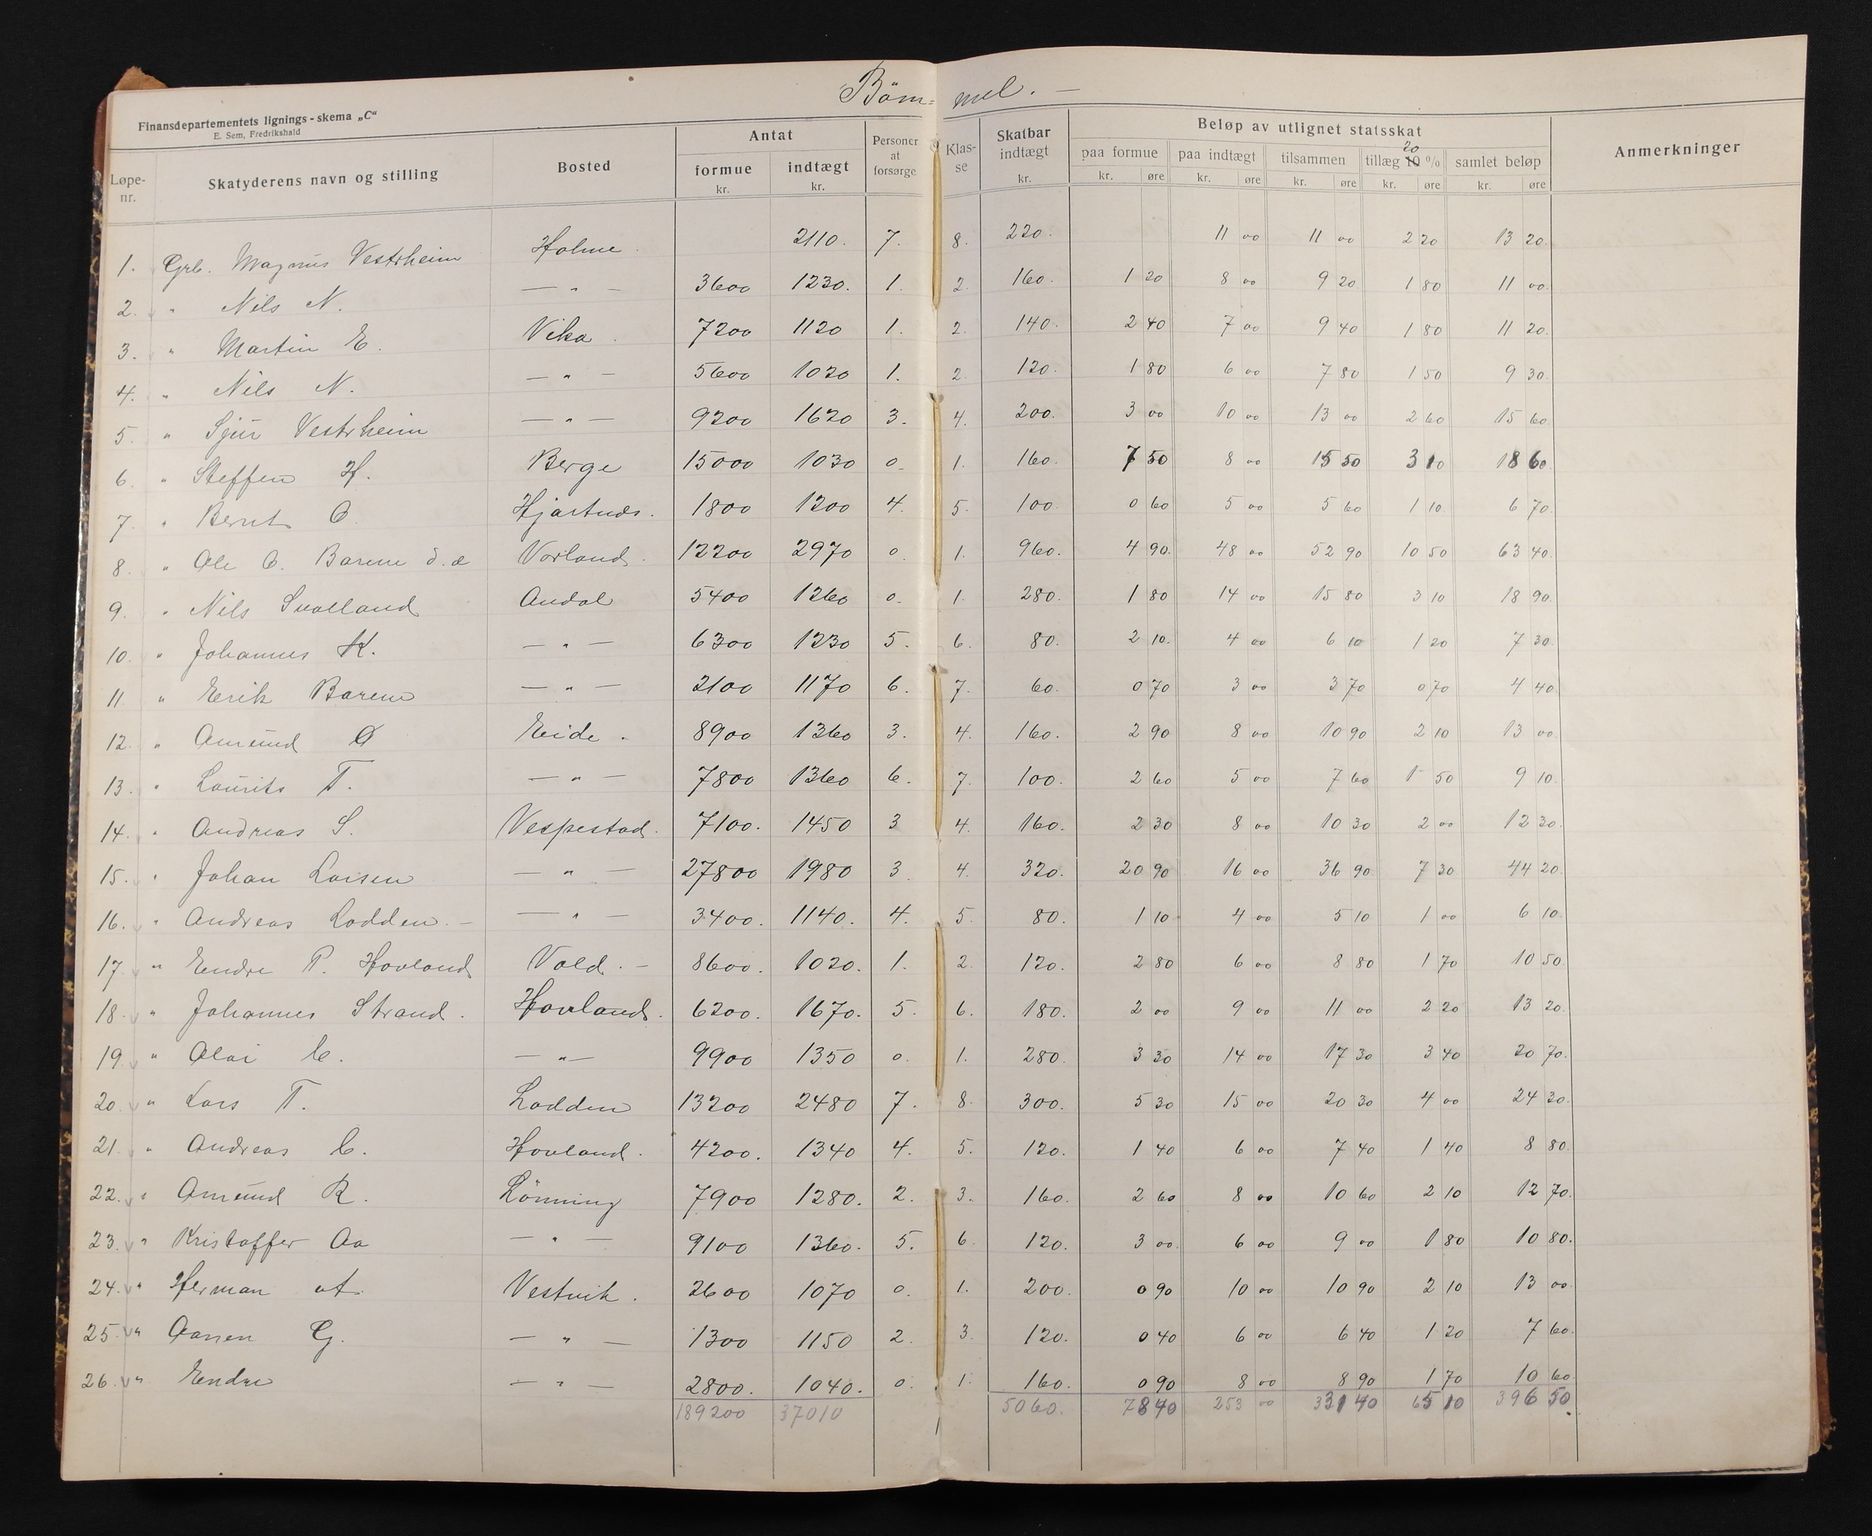 Böm- mel. -
Finansdepartementets lignings-skema „C“
E. Sem, Fredrikshald
Løpe-nr. Skatyderens navn og stilling Bosted Antat formue kr. indtægt kr. Personer at forsørge Klas-se Skatbar indtægt kr. Beløp av utlignet statsskat paa formue kr. øre paa indtægt kr. øre tilsammen kr. øre tillæg 20 10 % kr. øre samlet beløp kr. øre Anmerkninger
1. Grb. Magnus Vestrheim Holme 2110. 7. 8. 220. 11 00 11 00 2 20 13 20.
2. " Nils N. — " — 3600 1230. 1. 2. 160. 1 20 8 00 9 20 1 80 11 00.
3. " Martin E. Vika 7200 1120 1. 2. 140. 2 40 7 00 9 40 1 80 11 20.
4. " Nils N. — " — 5600 1020 1. 2. 120. 1 80 6 00 7 80 1 50 9 30.
5. " Sjur Vestrheim — " — 9200 1620 3. 4. 200. 3 00 10 00 13 00 2 60 15 60.
6. " Steffen H. Berge 15000 1030 0. 1. 160. 7 50 8 00 15 50 3 10 18 60.
7. " Bernt O. Hjartnæs. 1800 1200 4. 5. 100. 0 60 5 00 5 60 1 10 6 70.
8. " Ole O. Barene d.e Vorland. 12200 2970 0. 1. 960. 4 90. 48 00 52 90 10 50 63 40.
9. " Nils Svolland Andal 5400 1260 0. 1. 280. 1 80 14 00 15 80 3 10 18 90.
10. " Johannes K. — " — 6300 1230 5. 6. 80. 2 10. 4 00 6 10 1 20 7 30.
11 " Erik Barene — " — 2100 1170 6. 7. 60. 0 70 3 00 3 70 0 70 4 40.
12. " Amund O Eide. 8900 1360 3. 4. 160. 2 90 8 00 10 90 2 10 13 00.
13. " Laurits T. — " — 7800 1360 6. 7. 100. 2 60 5 00 7 60 1 50 9 10.
14. " Andreas S. Vespestad. 7100. 1450 3 4. 160. 2 30 8 00 10 30 2 00 12 30.
15. " Johan Larsen — " — 27800 1980 3. 4. 320. 20 90 16 00 36 90 7 30 44 20.
16. " Andreas Lodden. — — " — 3400. 1140. 4. 5. 80. 1 10 4 00 5 10 1 00 6 10.
17. " Endre P. Hovland Vold. — 8600. 1020. 1. 2. 120. 2 80 6 00 8 80 1 70 10 50.
18. " Johannes Strand. Hovland. 6200. 1670. 5. 6. 180. 2 00 9 00 11 00 2 20 13 20.
19. " Olai C. — " — 9900 1350 0. 1. 280. 3 30 14 00 17 30 3 40 20 70.
20. " Lars T. Lodden 13200 2480 7. 8. 300. 5 30 15 00 20 30 4 00 24 30.
21. " Andreas C. Hovland. 4200. 1340 4. 5. 120. 1 40 6 00 7 40 1 40 8 80.
22. " Amund R. Lönning 7900 1280. 2. 3. 160. 2 60 8 00 10 60 2 10 12 70.
23. " Kristoffer Aa — " — 9100 1360. 5. 6. 120. 3 00. 6 00 9 00 1 80 10 80.
24. " Herman Vestvik. 2600 1070 0. 1. 200. 0 90 10 00 10 90 2 10 13 00.
25. " Aanen G. — " — 1300 1150 2. 3. 120. 0 40 6 00 6 40 1 20 7 60.
26. " Endre — " — 2800. 1040. 0. 1. 160. 0 90 8 00 8 90 1 70 10 60
189200 37010 5060. 78 40 253 00 331 40 65 10 396 50.